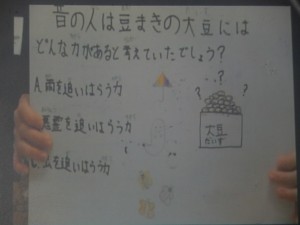 昔の人は豆まきの大豆には
どんな力があると考えていたでしょう?
A.雨を追いはらう力
悪霊を追いはらう力
を追いはらう力
大豆
だいず
? ? ?